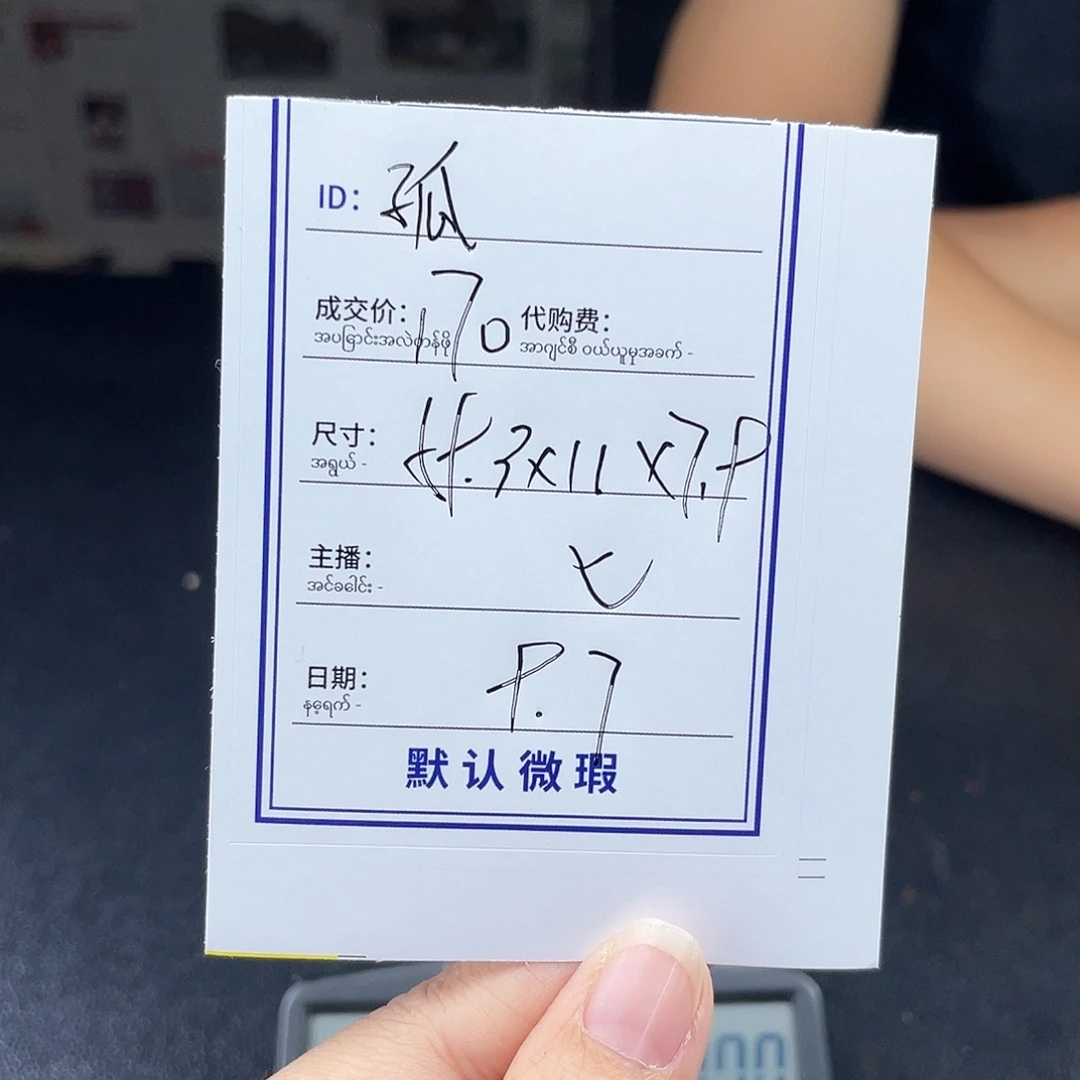 ID: 孤
成交价: 170 代购费:
အပြောင်းအလဲတန်ဖိုး အာဂျင်စီ ဝယ်ယူမှုအခက် -
尺寸: .3x11x7.8
အရွယ် -
主播: 七
အင်ခေါင်း -
日期: 8.7
နေ့ရက် -
默认微瑕